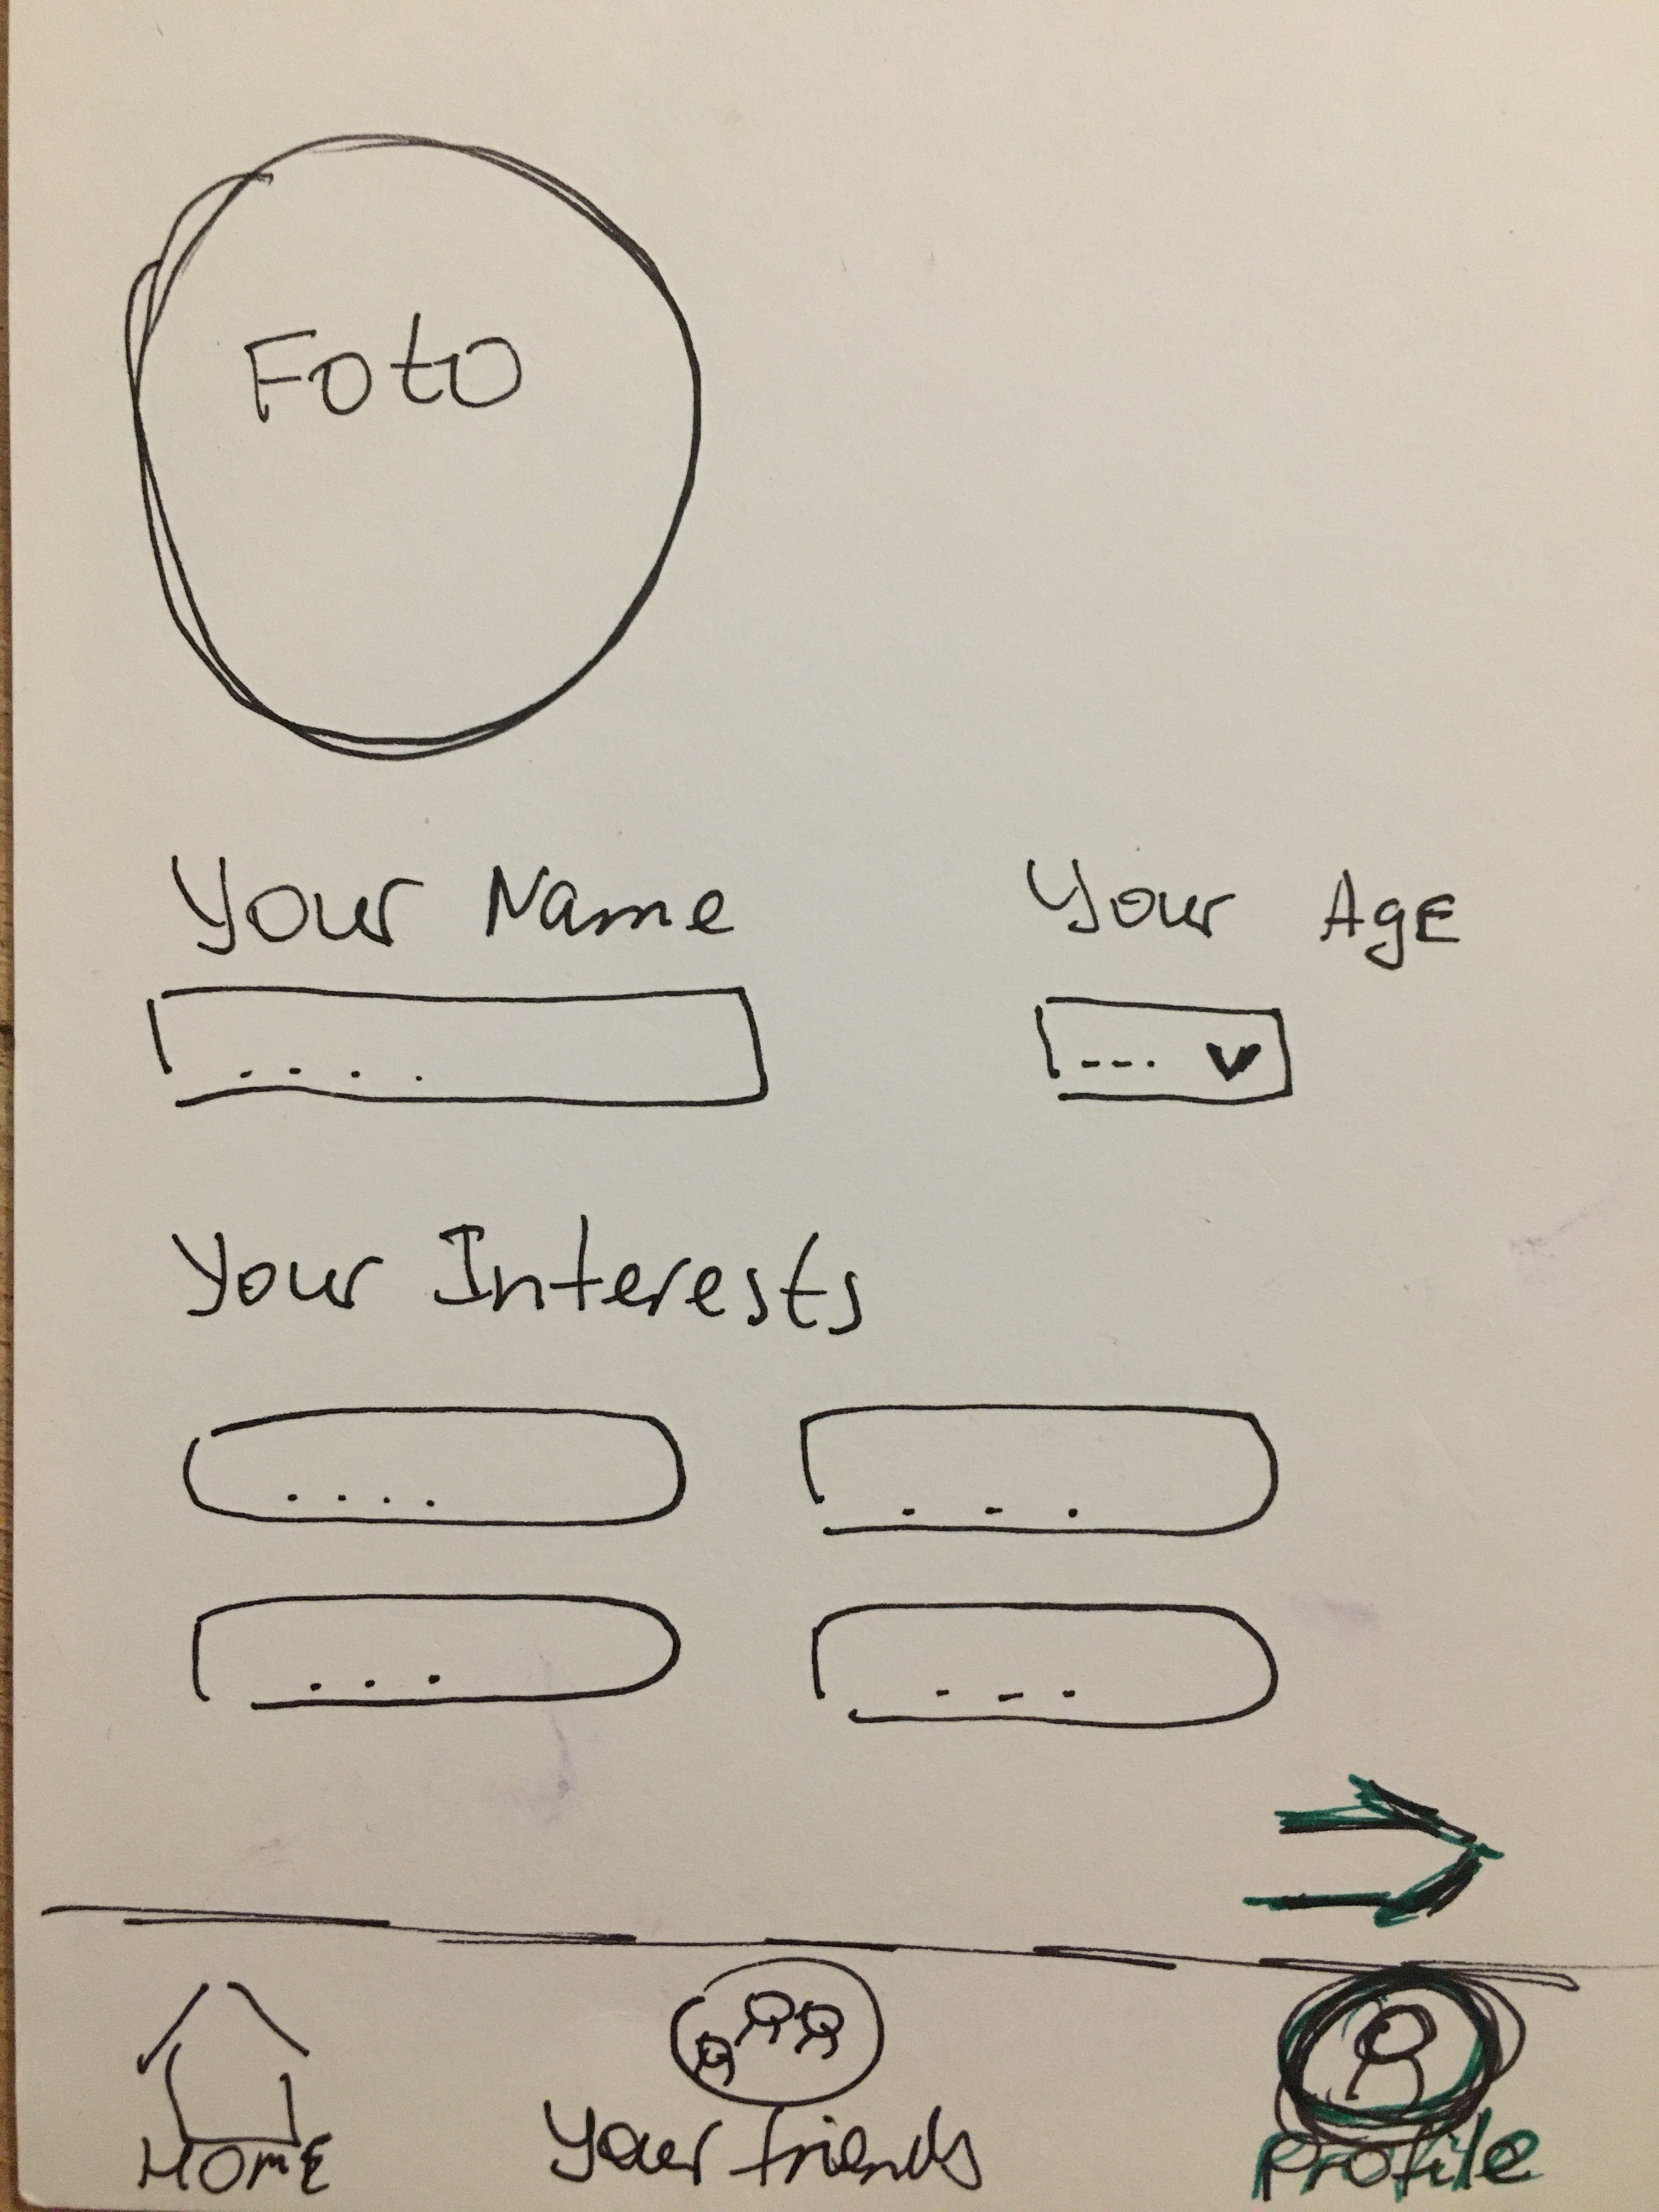 Foto
Your Name
Your AgE
....
---.
Your Interests
....
...
...
...
HOME
Your friends
Profile